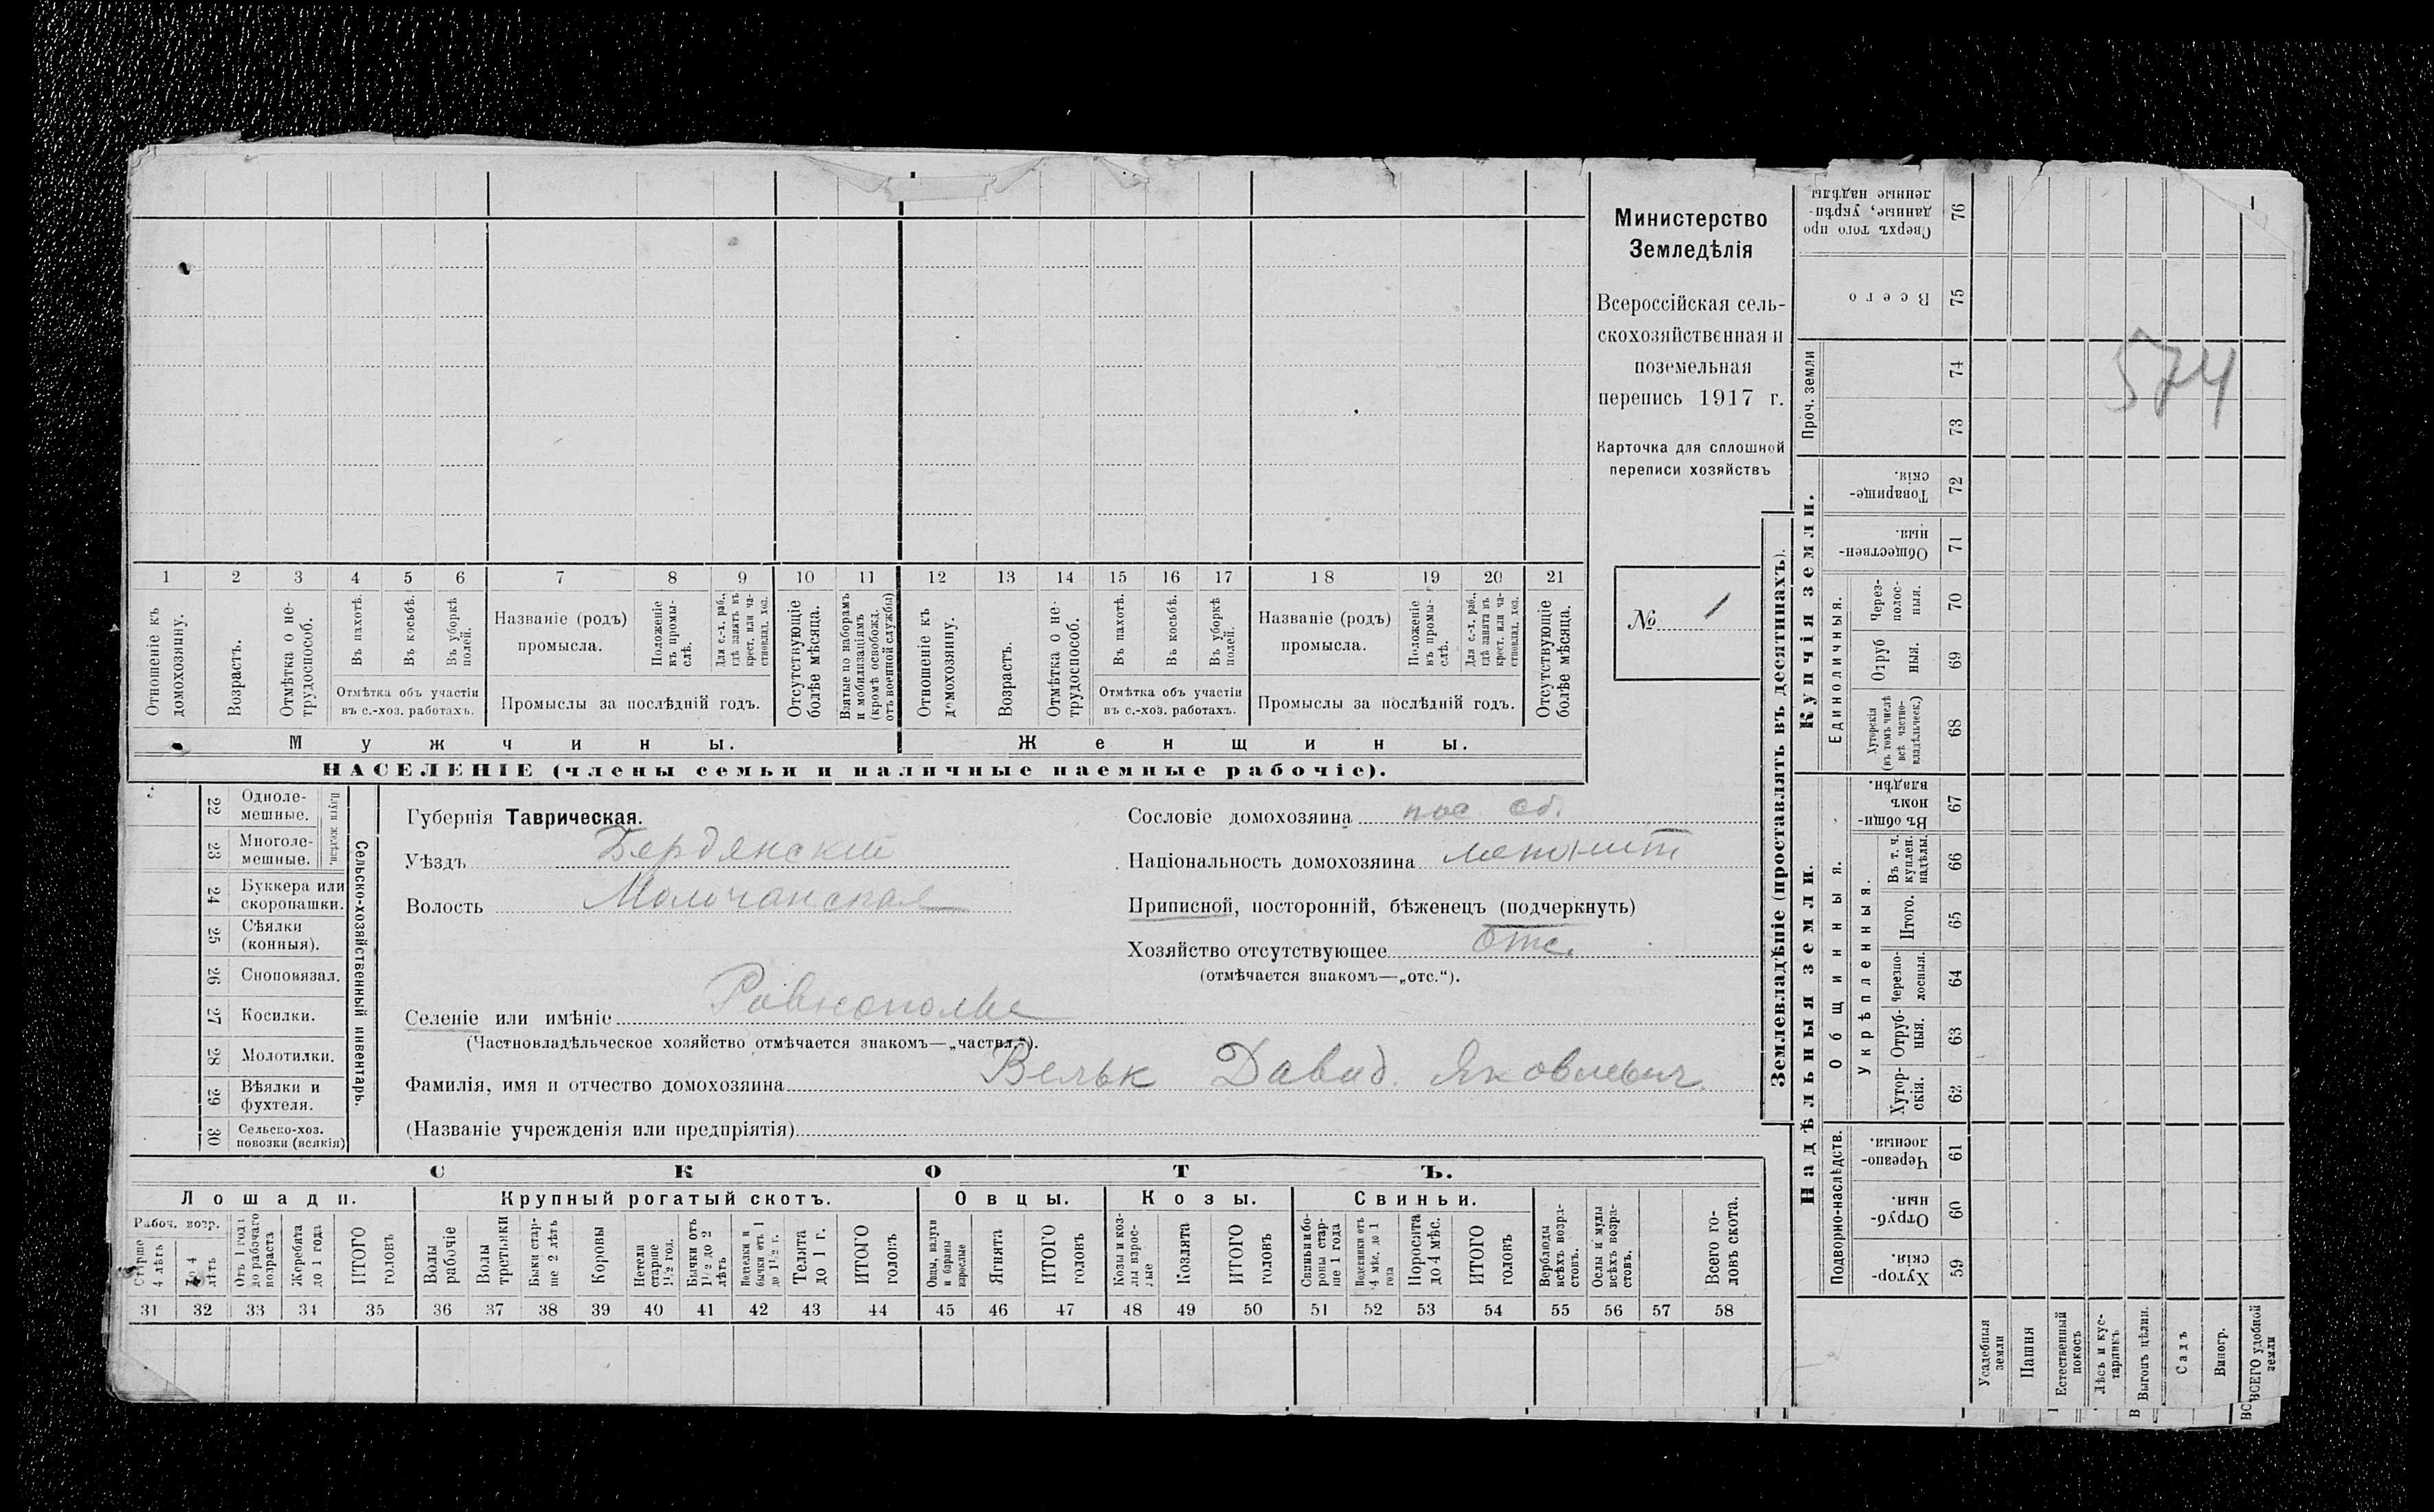 Министерство
Земледѣлія
Всероссійская сель-
скохозяйственная и
поземельная
перепись 1917 г.
Карточка для сплошной
переписи хозяйствъ
№ 1
1 2 3 4 5 6 7 8 9 10 11 12 13 14 15 16 17 18 19 20 21
Отношеніе къ домохозяину.
Возрастъ.
Отмѣтка о не-трудоспособ.
Въ пахотѣ.
Въ косьбѣ.
Въ уборкѣ полей.
Отмѣтка объ участіи
въ с.-хоз. работахъ.
Названіе (родъ)
промысла.
Положеніе въ промы-слѣ.
Для с.-х. раб., гдѣ занятъ въ крест. или ча-стновлад. хоз.
Промыслы за послѣдній годъ.
Отсутствующіе болѣе мѣсяца.
Взятые по наборамъ и мобилизаціямъ (кромѣ освобожд. отъ военной службы)
Отношеніе къ домохозяину.
Возрастъ.
Отмѣтка о не-трудоспособ.
Въ пахотѣ.
Въ косьбѣ.
Въ уборкѣ полей.
Отмѣтка объ участіи
въ с.-хоз. работахъ.
Названіе (родъ)
промысла.
Положеніе въ промы-слѣ.
Для с.-х. раб., гдѣ занята въ крест. или ча-стновлад. хоз.
Промыслы за послѣдній годъ.
Отсутствующіе болѣе мѣсяца.
Мужчины.
Женщины.
НАСЕЛЕНІЕ (члены семьи и наличные наемные рабочіе).
22 Одноле-мешные.
23 Многоле-мешные.
Плуги желѣзн.
24 Буккера или скоропашки.
25 Сѣялки (конныя).
26 Сноповязал.
27 Косилки.
28 Молотилки.
29 Вѣялки и фухтеля.
30 Сельско-хоз. повозки (всякія)
Сельско-хозяйственный инвентарь.
Губернія Таврическая.
Уѣздъ Бердянскій
Волость Молочанская
Селеніе или имѣніе Ровнополье
(Частновладѣльческое хозяйство отмѣчается знакомъ—„частвл.“).
Фамилія, имя и отчество домохозяина Велък Давид Яковлевич.
(Названіе учрежденія или предпріятія)
Сословіе домохозяина пос об.
Національность домохозяина менонит
Приписной, посторонній, бѣженецъ (подчеркнуть)
Хозяйство отсутствующее отс.
(отмѣчается знакомъ—„отс.“).
СКОТЪ.
Лошади.
Крупный рогатый скотъ.
Овцы.
Козы.
Свиньи.
Рабоч. возр.
Старше 4 лѣтъ
До 4 лѣтъ
Отъ 1 года до рабочаго возраста
Жеребята до 1 года
ИТОГО головъ
Волы рабочіе
Волы третьяки
Быки стар-ше 2 лѣтъ
Коровы
Нетели старше 1½ год.
Бычки отъ 1½ до 2 лѣтъ
Нетелки и бычки отъ 1 до 1½ г.
Телята до 1 г.
ИТОГО головъ
Овцы, валухи и бараны взрослые
Ягнята
ИТОГО головъ
Козы и коз-лы взрос-лые
Козлята
ИТОГО головъ
Свиньи и бо-ровы стар-ше 1 года
Подсвинки отъ 4 мѣс. до 1 года
Поросята до 4 мѣс.
ИТОГО головъ
Верблюды всѣхъ возра-стовъ.
Ослы и мулы всѣхъ возра-стовъ.
Всего го-ловъ скота.
31 32 33 34 35 36 37 38 39 40 41 42 43 44 45 46 47 48 49 50 51 52 53 54 55 56 57 58
Землевладѣніе (проставлять въ десятинахъ).
Купчія земли.
Надѣльныя земли.
Сверхъ того про данные, укрѣп-ленные надѣлы 76
Всего 75
Проч. земли
74
73
Товарище-скія. 72
Обществен-ныя. 71
Единоличныя.
Через-полос-ныя. 70
Отруб ныя. 69
Хуторскія (въ томъ числѣ всѣ частно-владѣльческ.) 68
Общинныя.
Въ общин-номъ владѣн. 67
Укрѣпленныя.
Въ т. ч. куплен. надѣлы 66
Итого. 65
Черезпо-лосныя. 64
Отруб-ныя. 63
Хутор-скія. 62
Подворно-наслѣдств.
Черезпо-лосныя. 61
Отруб-ныя. 60
Хутор-скія. 59
Усадебныя земли
Пашня
Естественный покосъ
Лѣсъ и кус-тарникъ
Выгонъ цѣлин.
Садъ
Виногр.
ВСЕГО удобной земли
574
1